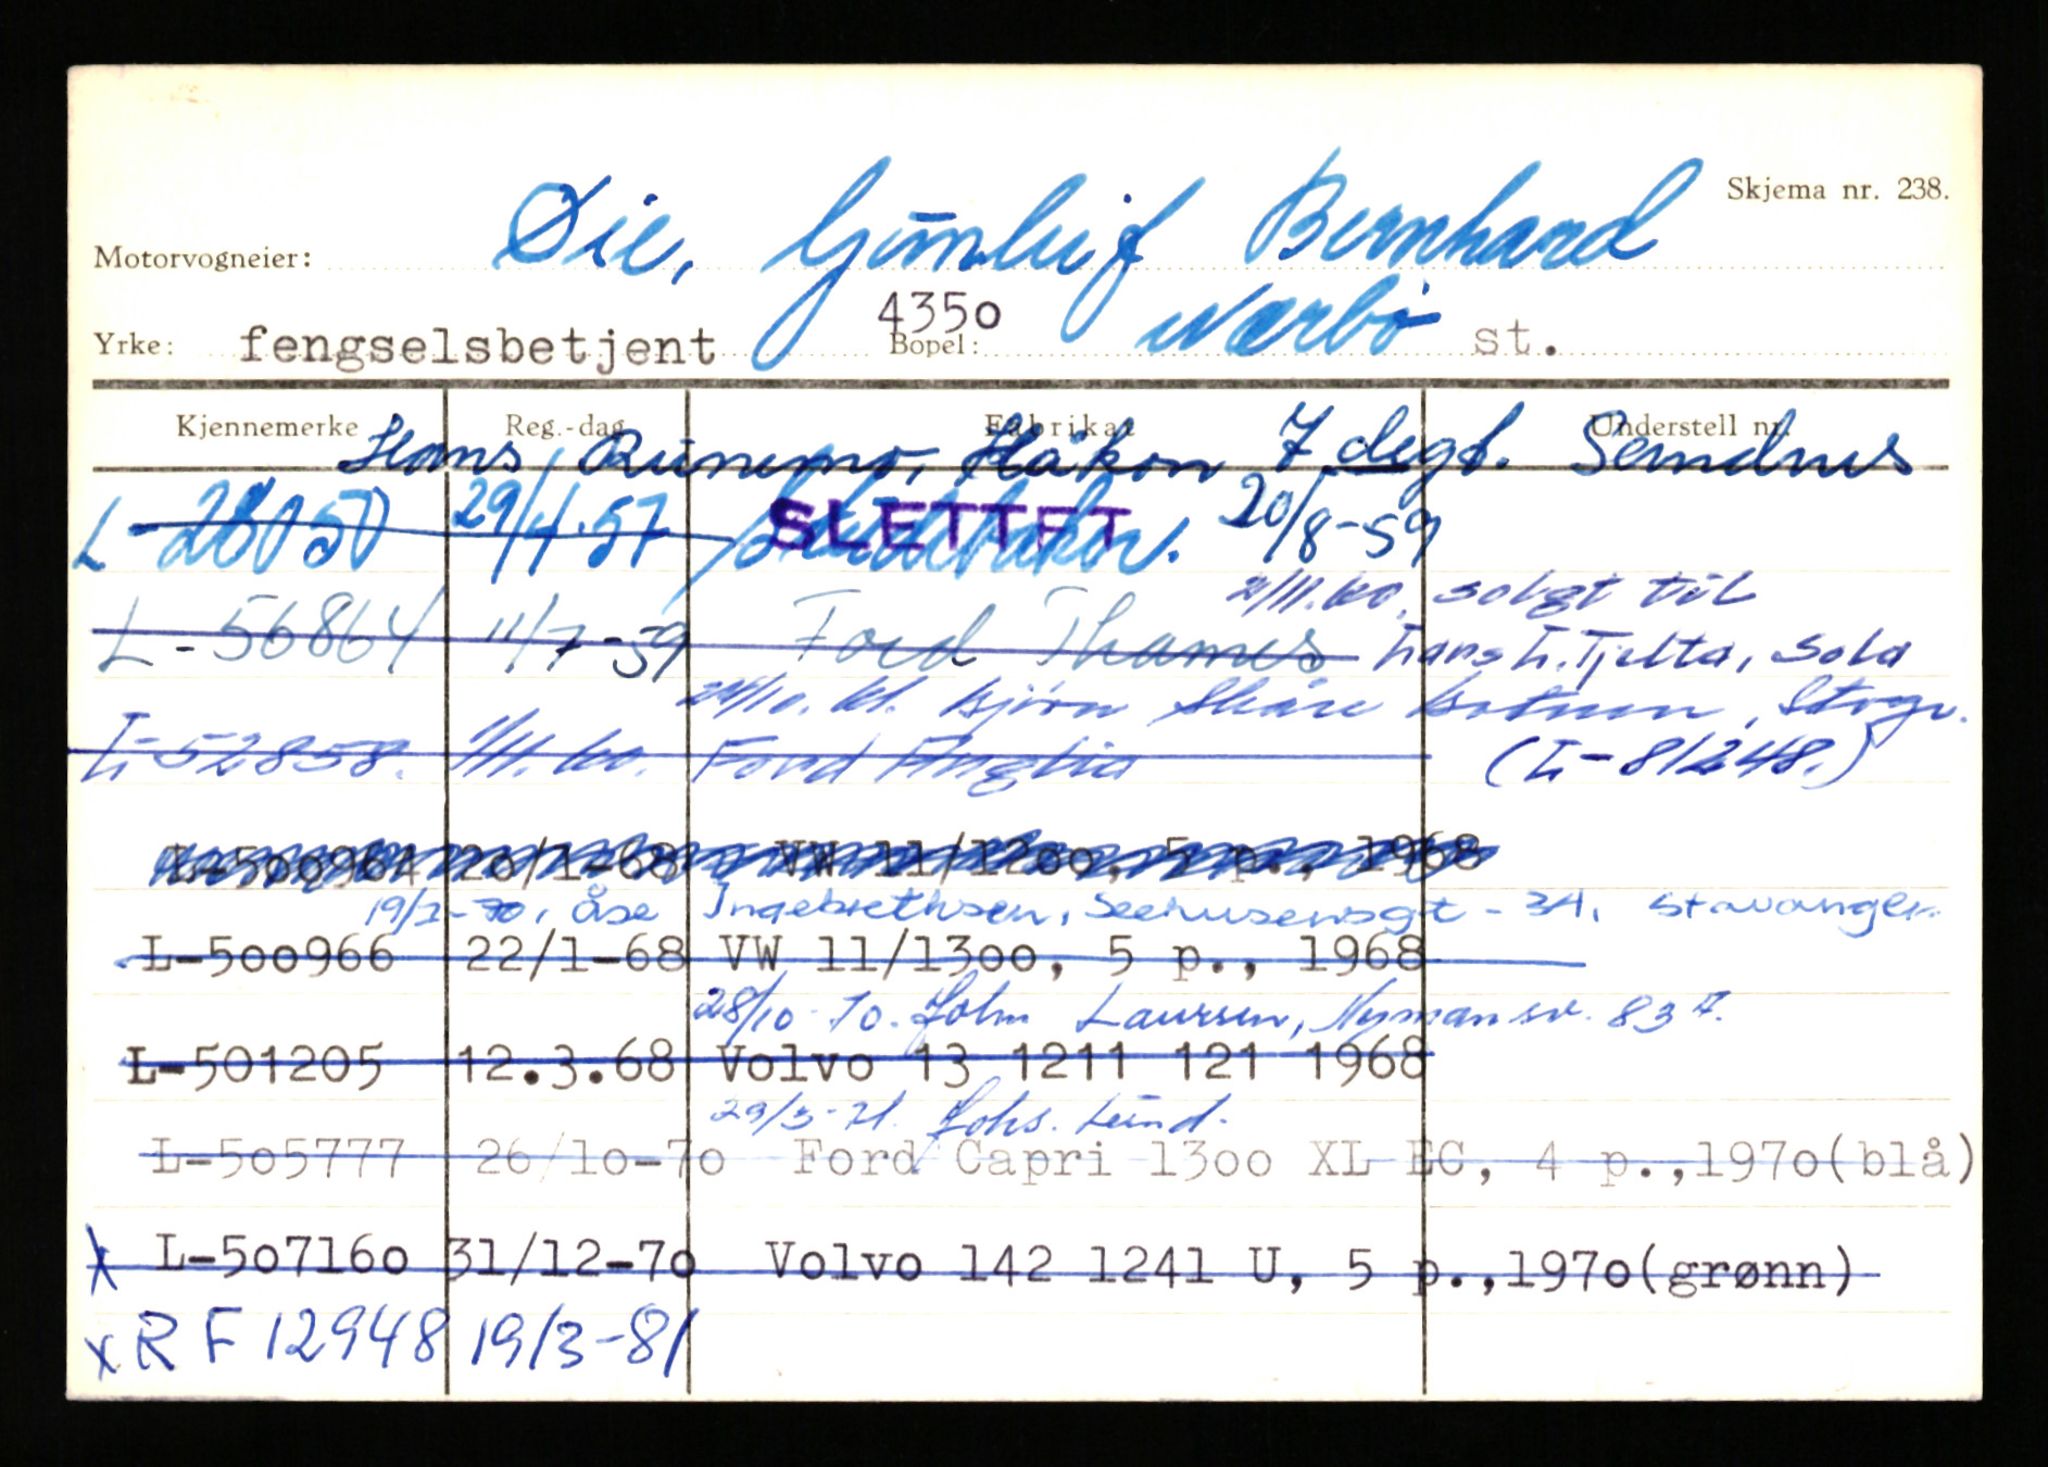 Skjema nr. 238.
Motorvogneier: Øie, Gunleif Bernhard
4350
Yrke: fengselsbetjent Bopel: Nærbø st.
Kjennemerke Reg.-dag Fabrikat Understell nr.
Hans Håkon
L-28050 29/4.57 SLETTET 20/8-59
2/11.60. solgt til
L-56864 11/7-59 Ford Thames Hans L. Tjelta, Sola
Bjørn
L-52858. 1/11.60. Ford Anglia (L-81248.)
L-500964 20/1-68 VW 11/1200, 5 p., 1968
Åse Ingebrethsen, Seehusensgt - 34, Stavanger.
L-500966 22/1-68 VW 11/1300, 5 p., 1968
28/10-70. John Laursen, Nymansv. 83
L-501205 12.3.68 Volvo 13 1211 121 1968
29/3-71. Johs. Lund.
L-505777 26/10-70 Ford Capri 1300 XL EC, 4 p.,1970(blå)
x L-507160 31/12-70 Volvo 142 1241 U, 5 p.,1970(grønn)
x RF 12948 19/3-81